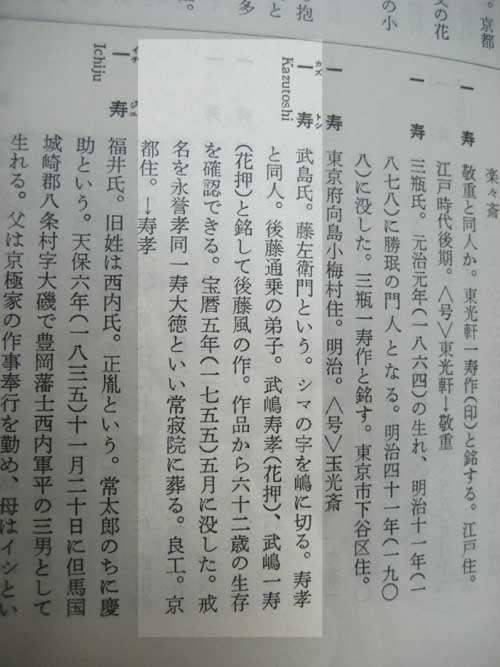 楽々斎
一寿 敬重と同人か。東光軒一寿作(印)と銘する。江戸住。
江戸時代後期。〈号〉東光軒→敬重
一寿 三瓶氏。元治元年(一八六四)の生れ、明治十一年(一
八七八)に勝珉の門人となる。明治四十一年(一九〇
八)に没した。三瓶一寿作と銘す。東京市下谷区住。
一寿 東京府向島小梅村住。明治。〈号〉玉光斎
一寿 カズ トシ Kazutoshi 武島氏。藤左衛門という。シマの字を嶋に切る。寿孝
と同人。後藤通乗の弟子。武嶋寿孝(花押)、武嶋一寿
(花押)と銘して後藤風の作。作品から六十二歳の生存
を確認できる。宝暦五年(一七五五)五月に没した。戒
名を永誉孝同一寿大徳といい常寂院に葬る。良工。京
都住。→寿孝
一寿 イチ ジュ Ichiju 福井氏。旧姓は西内氏。正胤という。常太郎のちに慶
助という。天保六年(一八三五)十一月二十日に但馬国
城崎郡八条村字大磯で豊岡藩士西内軍平の三男として
生れる。父は京極家の作事奉行を勤め、母はイシとい